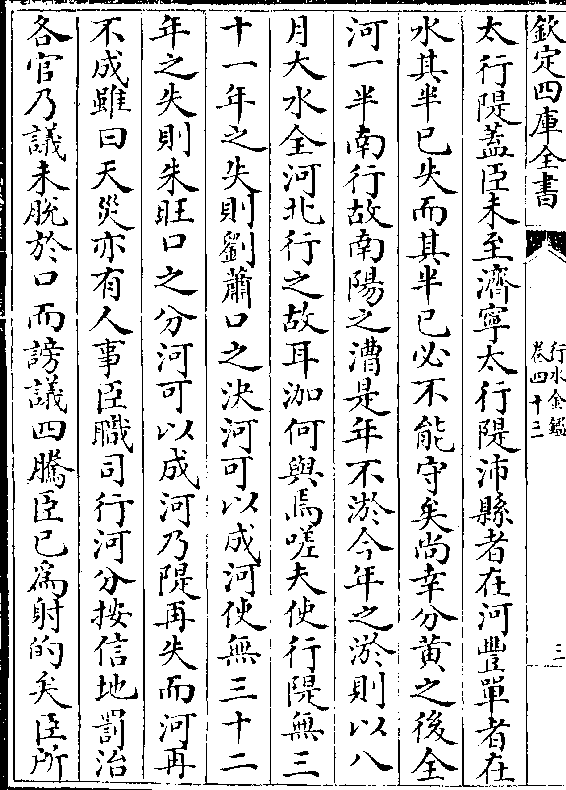 欽定四庫全書
行水金鑑
卷四十三
三
太行隄蓋臣未至濟寧太行隄沛縣者在河豐單者在
水其半已失而其半已必不能守矣尚幸分黄之後全
河一半南行故南陽之漕是年不淤今年之淤則以八
月大水全河北行之故耳泇何與焉嗟夫使行隄無三
十一年之失則劉蕭口之決河可以成河使無三十二
年之失則朱旺口之分河可以成河乃隄再失而河再
不成雖曰天災亦有人事臣職司行河分按信地罰治
各官乃議未脫於口而謗議四騰臣已為射的矣臣所